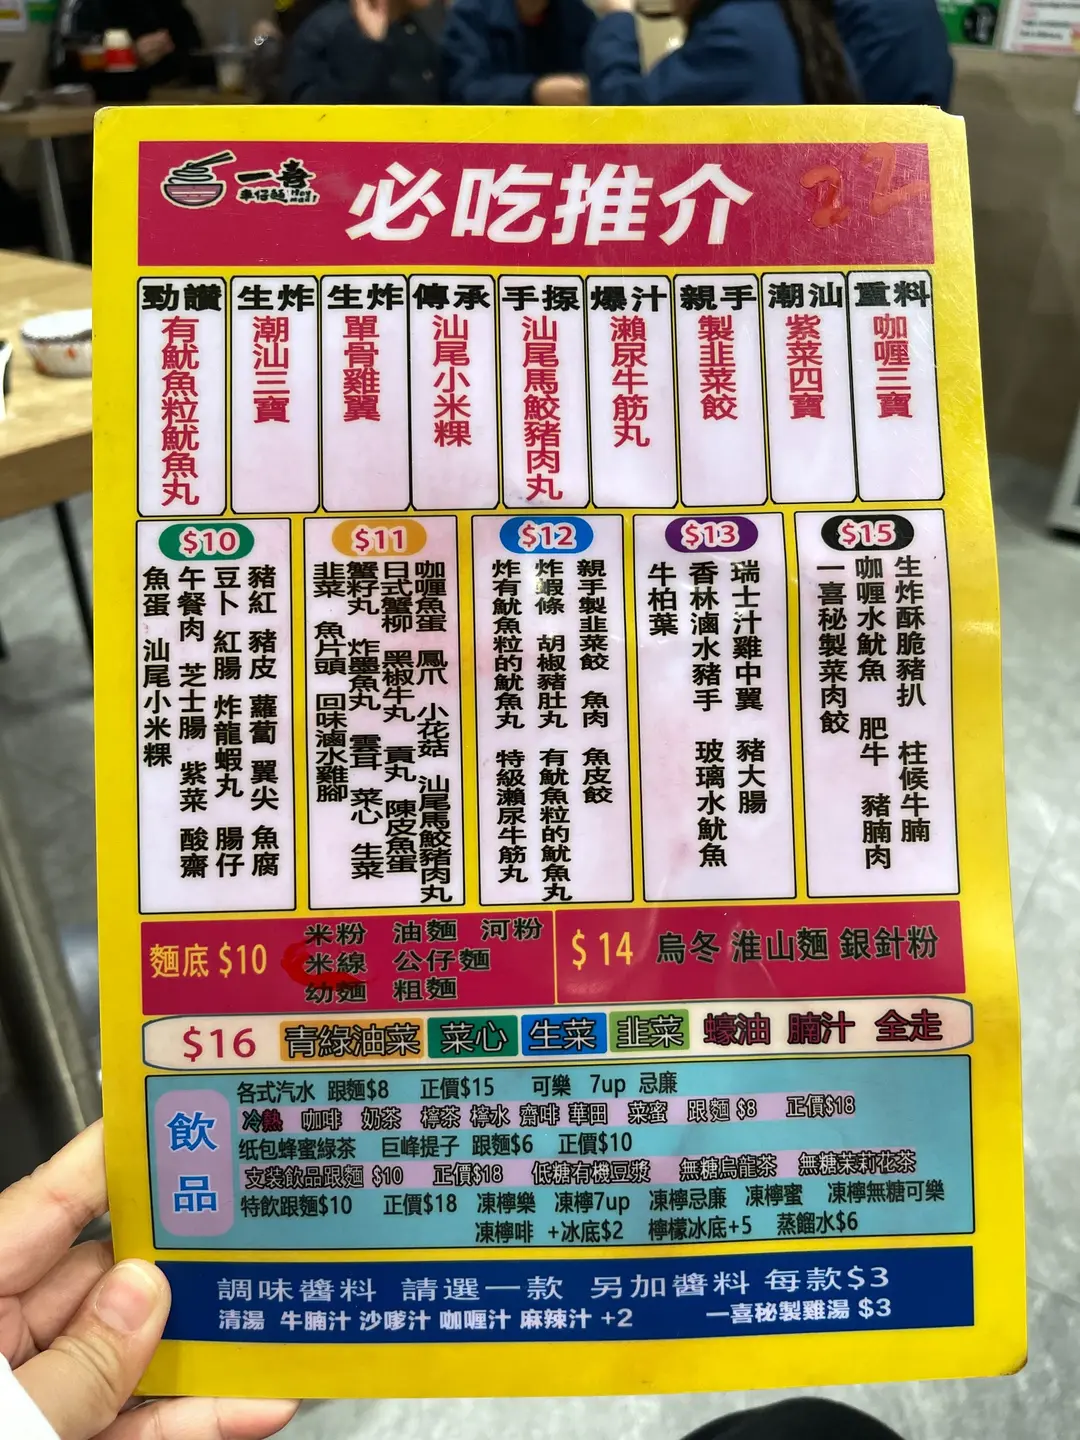 一喜
車仔麵
必吃推介
22
勁讚
有魷魚粒魷魚丸
生炸
潮汕三寶
生炸
單骨雞翼
傳承
汕尾小米粿
手捩
汕尾馬鮫豬肉丸
爆汁
瀨尿牛筋丸
親手
製韭菜餃
潮汕
紫菜四寶
重料
咖喱三寶
$10
豬紅 豬皮 蘿蔔 翼尖 魚腐
豆卜 紅腸 炸龍蝦丸 腸仔
午餐肉 芝士腸 紫菜 酸齋
魚蛋 汕尾小米粿
$11
咖喱魚蛋 鳳爪 小花菇 汕尾馬鮫豬肉丸
日式蟹柳 黑椒牛丸 貢丸 陳皮魚蛋
蟹籽丸 炸墨魚丸 雲耳 菜心 生菜
韭菜 魚片頭 回味滷水雞腳
$12
親手製韭菜餃 魚肉 魚皮餃
炸蝦條 胡椒豬肚丸 有魷魚粒的魷魚丸
炸有魷魚粒的魷魚丸 特級瀨尿牛筋丸
$13
瑞士汁雞中翼 豬大腸
香林滷水豬手 玻璃水魷魚
牛柏葉
$15
生炸酥脆豬扒 柱候牛腩
咖喱水魷魚 肥牛 豬腩肉
一喜秘製菜肉餃
麵底 $10
米粉 油麵 河粉
米線 公仔麵
幼麵 粗麵
$ 14 烏冬 淮山麵 銀針粉
$16 青綠油菜 菜心 生菜 韭菜 蠔油 腩汁 全走
飲品
各式汽水 跟麵$8 正價$15 可樂 7up 忌廉
冷熱 咖啡 奶茶 檸茶 檸水 齋啡 華田 菜蜜 跟麵 $8 正價$18
纸包蜂蜜綠茶 巨峰提子 跟麵$6 正價$10
支裝飲品跟麵 $10 正價$18 低糖有機豆漿 無糖烏龍茶 無糖茉莉花茶
特飲跟麵$10 正價$18 凍檸樂 凍檸7up 凍檸忌廉 凍檸蜜 凍檸無糖可樂
凍檸啡 +冰底$2 檸檬冰底+5 蒸餾水$6
調味醬料 請選一款 另加醬料 每款$3
清湯 牛腩汁 沙嗲汁 咖喱汁 麻辣汁 +2 一喜秘製雞湯 $3